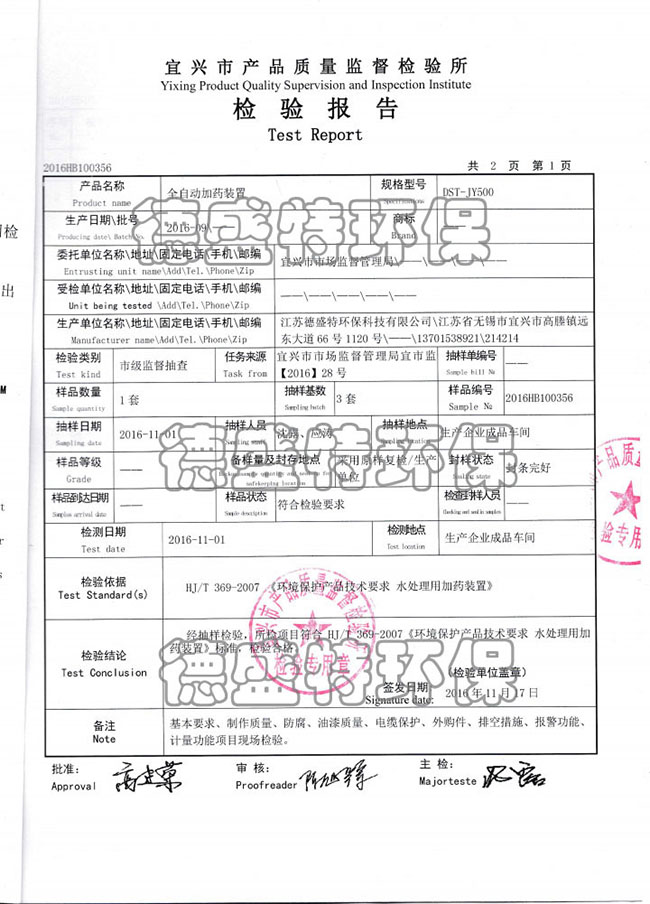 宜兴市产品质量监督检验所
Yixing Product Quality Supervision and Inspection Institute
检验报告
Test Report
2016HB100356 共 2 页 第 1 页
产品名称 全自动加药装置 规格型号 DST-JY500
Product name Specifications
生产日期\批号 2016-09\— 商标
Producing date\ Batch No. Brand
委托单位名称\地址\固定电话\手机\邮编 宜兴市市场监督管理局\——\——\——\——
Entrusting unit name\Add\Tel.\Phone\Zip
受检单位名称\地址\固定电话\手机\邮编 ——\——\——\——\——
Unit being tested \Add\Tel.\Phone\Zip
生产单位名称\地址\固定电话\手机\邮编 江苏德盛特环保科技有限公司\江苏省无锡市宜兴市高塍镇远
Manufacturer name\Add\Tel.\Phone\Zip 东大道 66 号 1120 号\——\13701538921\214214
检验类别 市级监督抽查 任务来源 宜兴市市场监督管理局宜市监 抽样单编号 ——
Test kind Task from 【2016】28 号 Sample bill №
样品数量 1 套 抽样基数 3 套 样品编号 2016HB100356
Sample quantity Sampling batch Sample №
抽样日期 2016-11-01 抽样人员 抽样地点 生产企业成品车间
Sampling date Sampling station
样品等级 —— 备样量及封存地点 采用原样复检/生产 封样状态 封条完好
Grade safekeeping location 单位 Sealing state
样品到达日期 —— 样品状态 符合检验要求 检查封样人员 ——
Samples arrival date Sample description Checking and sealing samples
检测日期 2016-11-01 检测地点 生产企业成品车间
Test date Test location
检验依据 HJ/T 369-2007 《环境保护产品技术要求 水处理用加药装置》
Test Standard(s)
检验结论 经抽样检验，所检项目符合 HJ/T 369-2007《环境保护产品技术要求 水处理用加
Test Conclusion 药装置》标准，检验合格。
(检验单位盖章)
签发日期
Signature date: 2016 年 11 月 17 日
备注 基本要求、制作质量、防腐、油漆质量、电缆保护、外购件、排空措施、报警功能、
Note 计量功能项目现场检验。
批准： 审 核： 主 检：
Approval Proofreader Majorteste
德盛特环保
德盛特环保
德盛特环保
宜兴市产品质量监督检验所
检验专用章
产品质
验专用
检
出
M
t
r
s